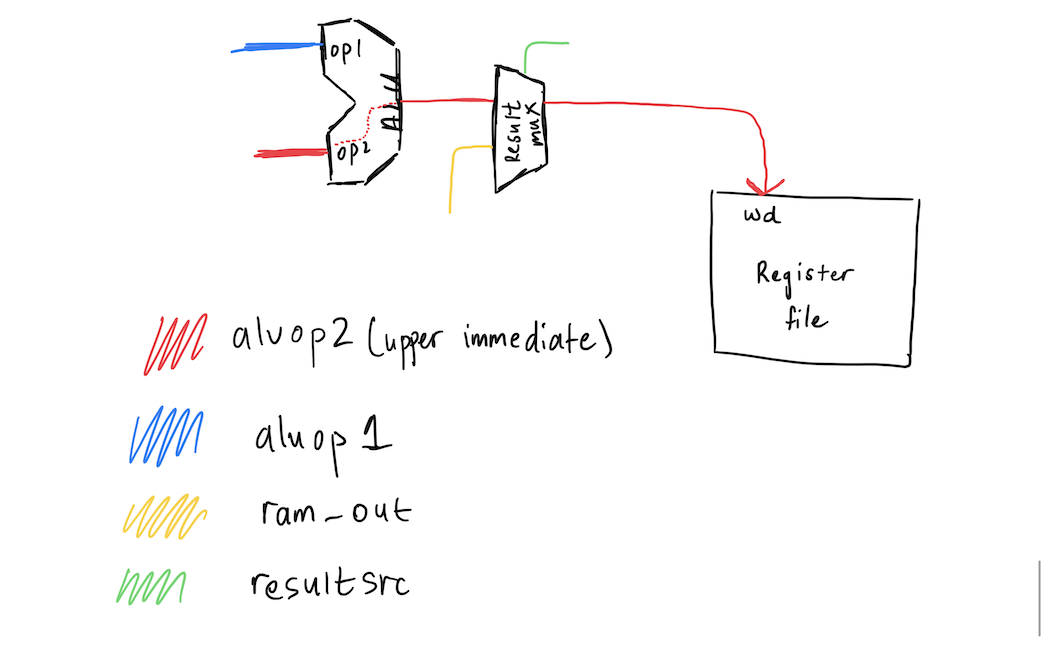 op1
ALU
op2
Result
mux
wd
Register
file
aluop2 (upper immediate)
aluop 1
ram_out
resultsrc